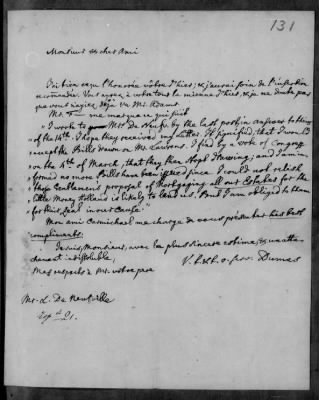 131
Monsieur & cher Ami
J'ai bien reçu l'honorée vôtre d'hier; & j'aurai soin de l'incluse
recommandée. Vous aurez à votre tour la mienne d'hier, & je ne doute pas
que vous n'ayiez déjà vu Mr. Adams.
Mr. F— me marque ce qui suit
"I wrote to Mrs. De Neufv. by the last post in answer to theirs
"of the 14th. I hope they received my Letter. It signified, that I would
"accept the Bills drawn on Mr. Laurens. I find by a vote of Congress
"on the 4th of March, that they then stopt drawing; and I am in-
"formed no more Bills have been issued since. I could not relish
"those Gentlemens proposal of Mortgaging all our Estates for the
"little Money Holland is likely to lend us. But I am obliged to them
"for their Zeal in our Cause."
Mon ami Carmichael me charge de vous présenter ses best
compliments.
Je suis, Monsieur, avec la plus sincere estime, & un atta-
chement indissoluble,
V. t. h. & t. o. serv. Dumas
Mes respects à Mr. votre pere
Mr. L. De Neufville